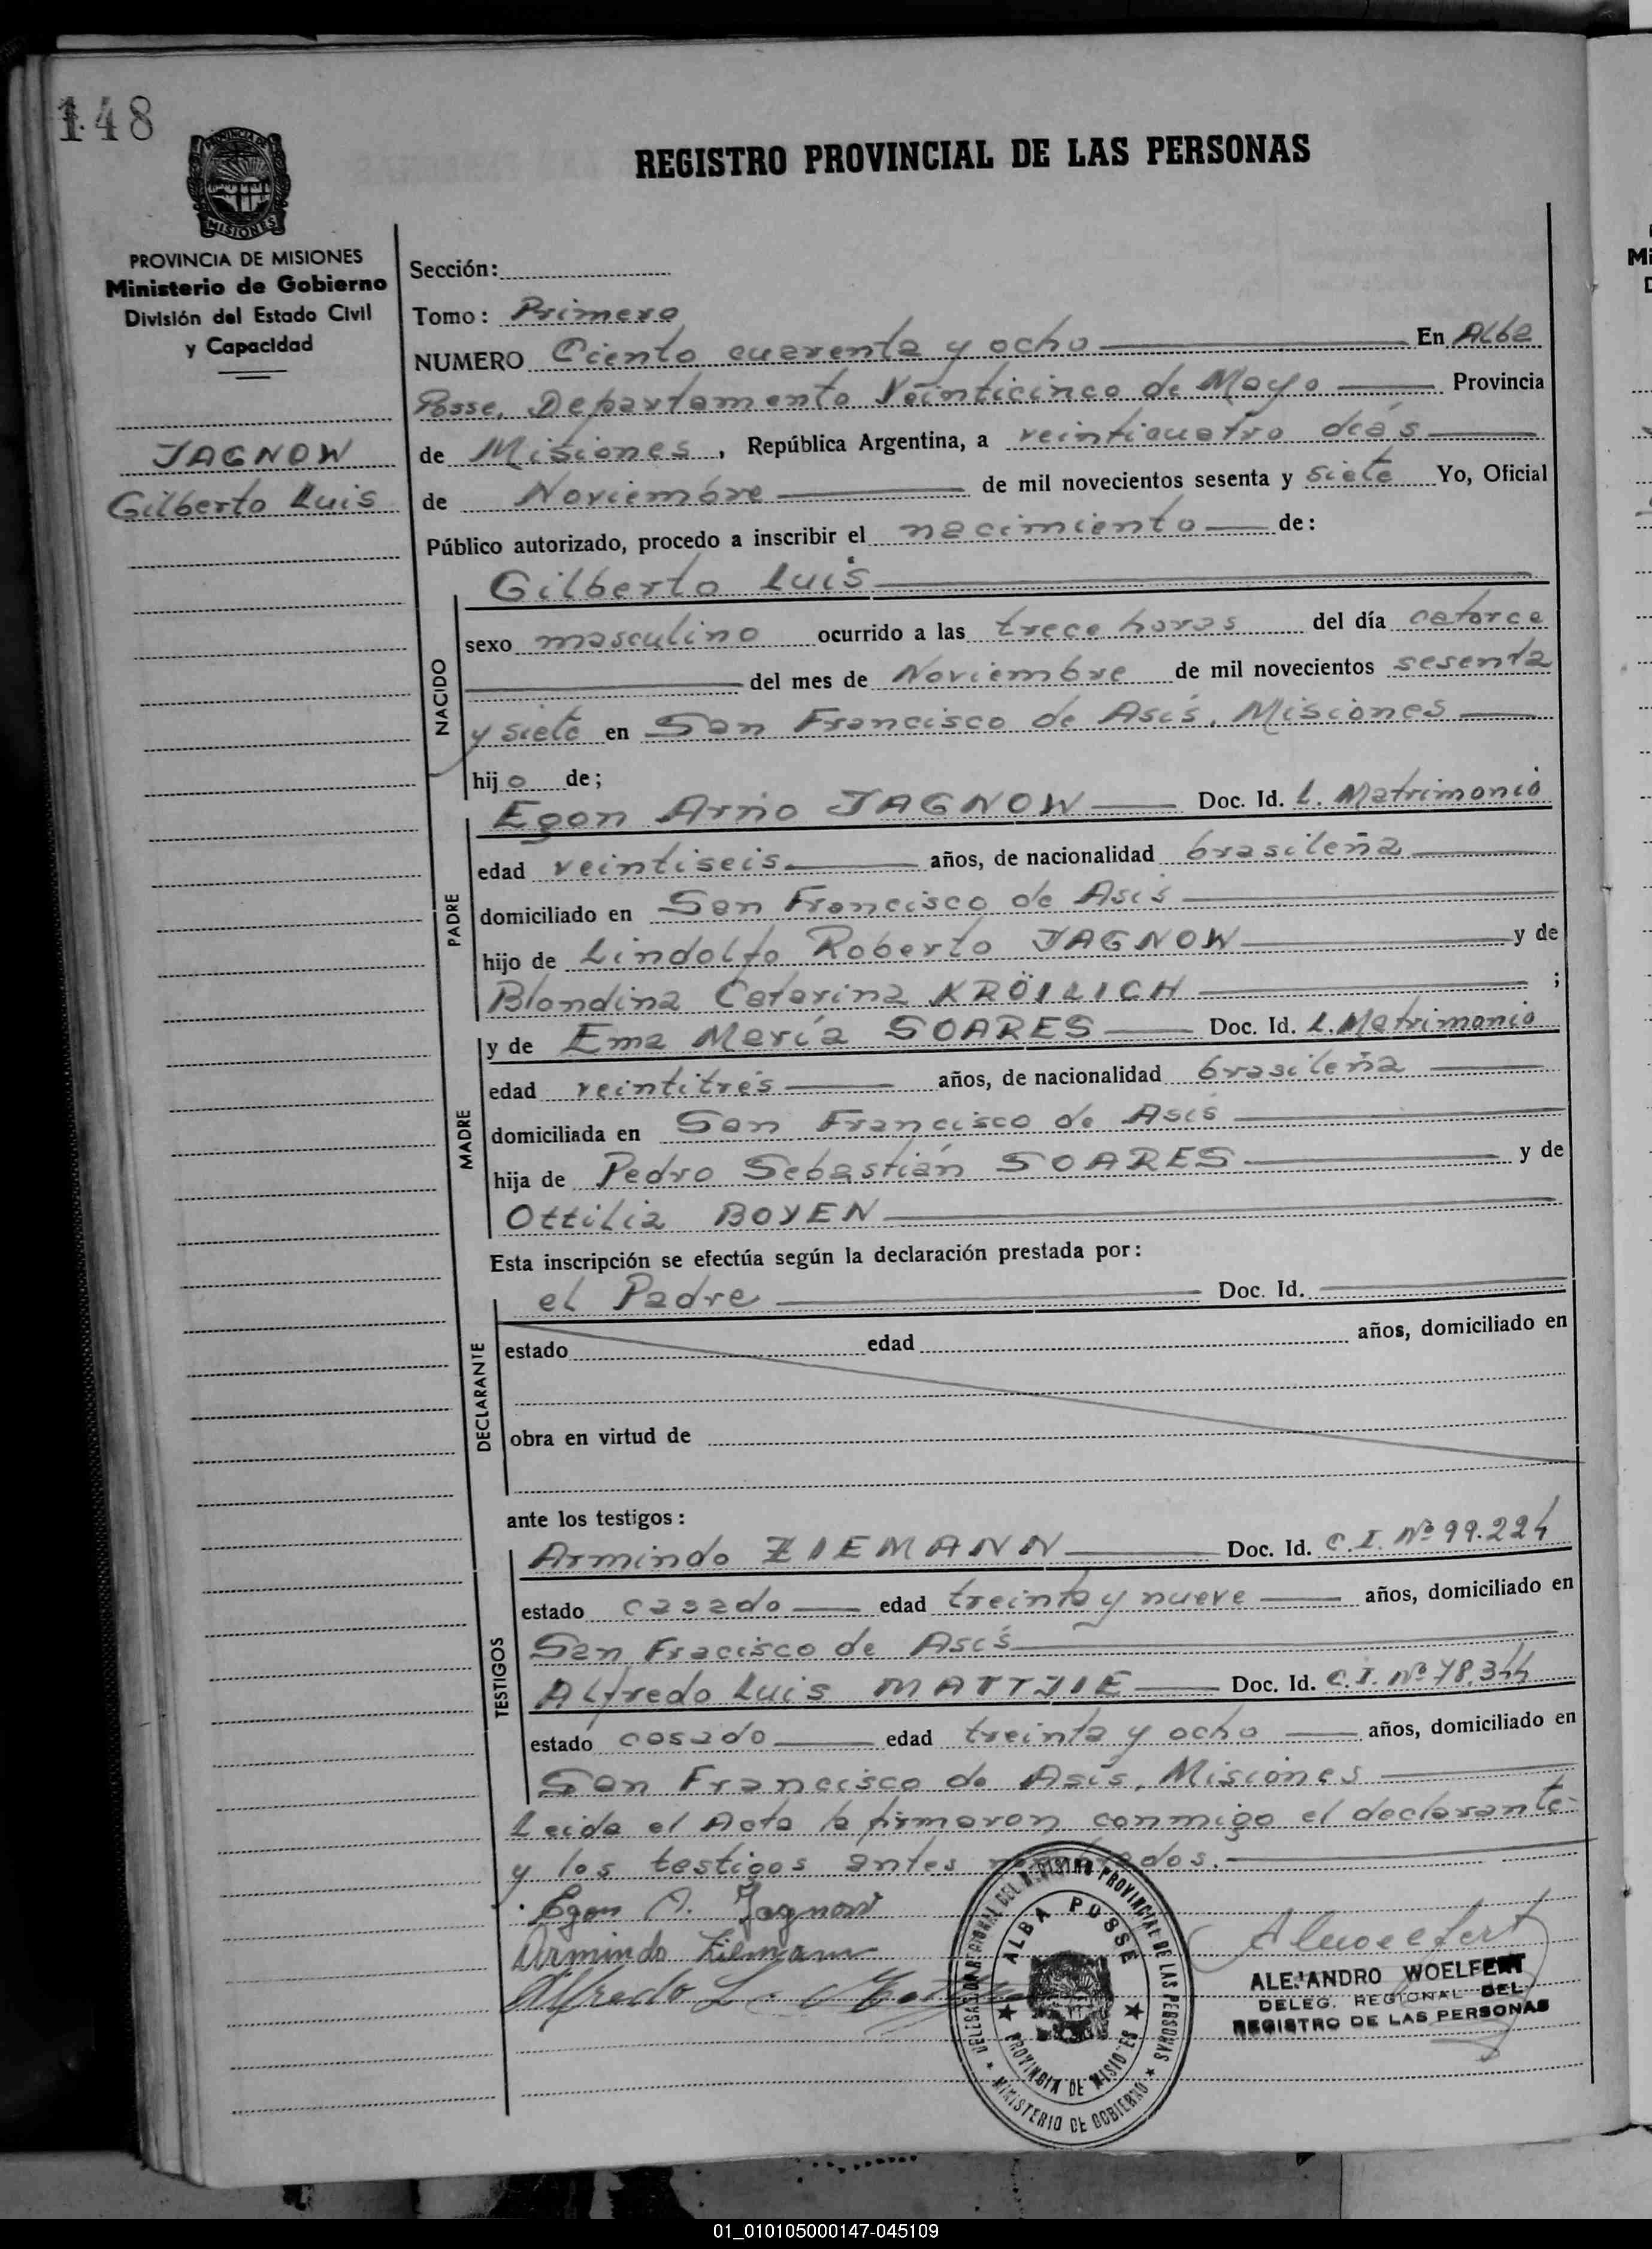 148
PROVINCIA DE
MISIONES
REGISTRO PROVINCIAL DE LAS PERSONAS
PROVINCIA DE MISIONES
Ministerio de Gobierno
División del Estado Civil
y Capacidad
JAGNOW
Gilberto Luis
Sección:
Tomo: Primero
NUMERO Ciento cuarenta y ocho En Alba
Posse, Departamento Veinticinco de Mayo Provincia
de Misiones, República Argentina, a veinticuatro diás
de Noviembre de mil novecientos sesenta y siete Yo, Oficial
Público autorizado, procedo a inscribir el nacimiento de:
Gilberto Luis
NACIDO
sexo masculino ocurrido a las trece horas del día catorce
del mes de Noviembre de mil novecientos sesenta
y siete en San Francisco de Asís, Misiones
hijo de;
PADRE
Egon Arno JAGNOW Doc. Id. L. Matrimonio
edad veintiseis años, de nacionalidad brasileña
domiciliado en San Francisco de Asís
hijo de Lindolfo Roberto JAGNOW y de
Blondina Catarina KRÖILICH ;
MADRE
y de Ema María SOARES Doc. Id. L. Matrimonio
edad veintitrés años, de nacionalidad brasileña
domiciliada en San Francisco de Asís
hija de Pedro Sebastián SOARES y de
Ottilia BOYEN
Esta inscripción se efectúa según la declaración prestada por:
DECLARANTE
el Padre Doc. Id.
estado edad años, domiciliado en
obra en virtud de
ante los testigos:
TESTIGOS
Armindo ZIEMANN Doc. Id. C.I. Nº 99.224
estado casado edad treinta y nueve años, domiciliado en
San Fracisco de Asís
Alfredo Luis MATTJIE Doc. Id. C.I. Nº 78.344
estado casado edad treinta y ocho años, domiciliado en
San Francisco de Asís, Misiones
Leida el Acta la firmaron conmigo el declarante
y los testigos antes nombrados.
Egon A. Jagnow
Armindo Ziemann
Alfredo L.
DELEGACION REGIONAL DEL REGISTRO PROVINCIAL DE LAS PERSONAS
ALBA POSSE
PROVINCIA DE MISIONES
MINISTERIO DE GOBIERNO
ALEJANDRO WOELFERT
DELEG. REGIONAL DEL
REGISTRO DE LAS PERSONAS
01_010105000147-045109